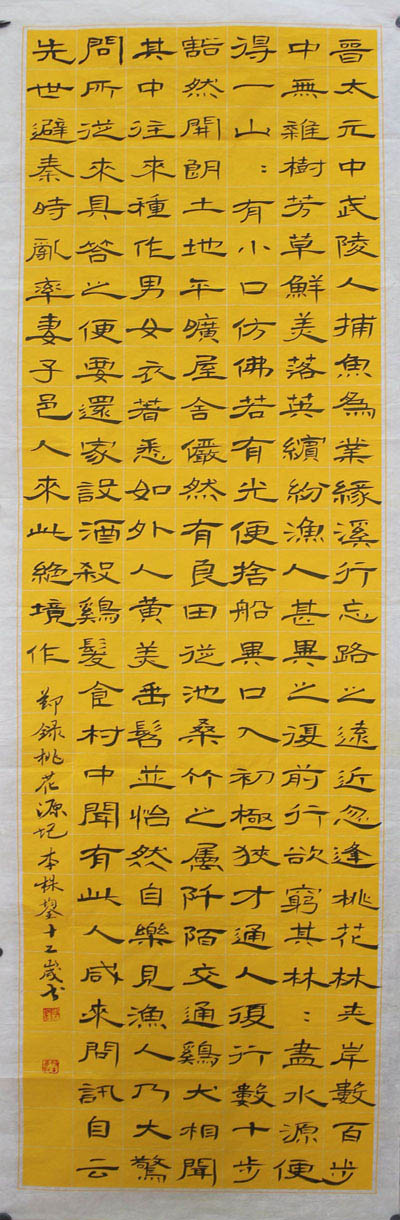 晉太元中武陵人捕魚為業緣溪行忘路之遠近忽逢桃花林夾岸數百步
中無雜樹芳草鮮美落英繽紛漁人甚異之復前行欲窮其林：盡水源便
得一山：有小口仿佛若有光便捨船異口入初極狹才通人復行數十步
豁然開朗土地平曠屋舍儼然有良田從池桑竹之屬阡陌交通鷄犬相聞
其中往來種作男女衣著悉如外人黃美垂髫並怡然自樂見漁人乃大驚
問所從來具答之便要還家設酒殺鷄髮食村中聞有此人咸來問訊自云
先世避秦時亂率妻子邑人來此絕境作
錄桃花源記 十二歲书